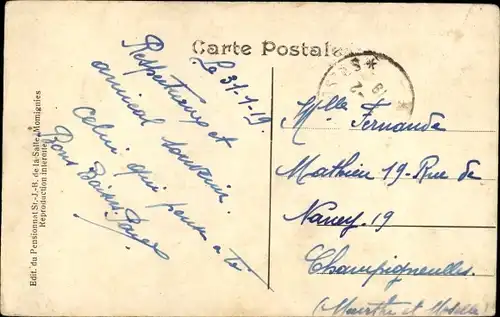 Carte Postale
Le 31-1-19.
Respectueux et
amical souvenir.
Celui qui pense a toi
Bons Baisers
Mlle Fernande
Mathieu 19-Rue de
Nancy. 19
Champigneulles
(Meurthe et Moselle)
Edit. du Pensionnat St.-J.-B. de la Salle, Momignies
Reproduction interdite